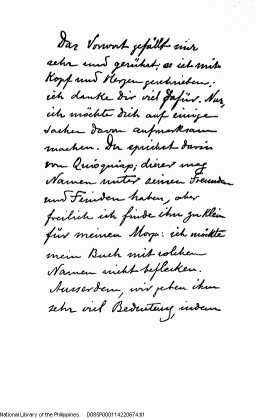 Das Vorwort gefällt mir
sehr und gerührt; es ist mit
Kopf und Herzen geschrieben;
ich danke dir viel dafür. Nur
ich möchte dich auf einige
Sachen davon aufmerksam
machen. Du sprichst darin
von Quioquiap; dieser mag
Namen unter seinen Freunden
und Feinden haben, aber
freilich ich finde ihn zu klein
für meinen Morga: ich möchte
mein Buch mit solchen
Namen nicht beflecken.
Ausserdem, wir geben ihm
sehr viel Bedeutung, indem
National Library of the Philippines